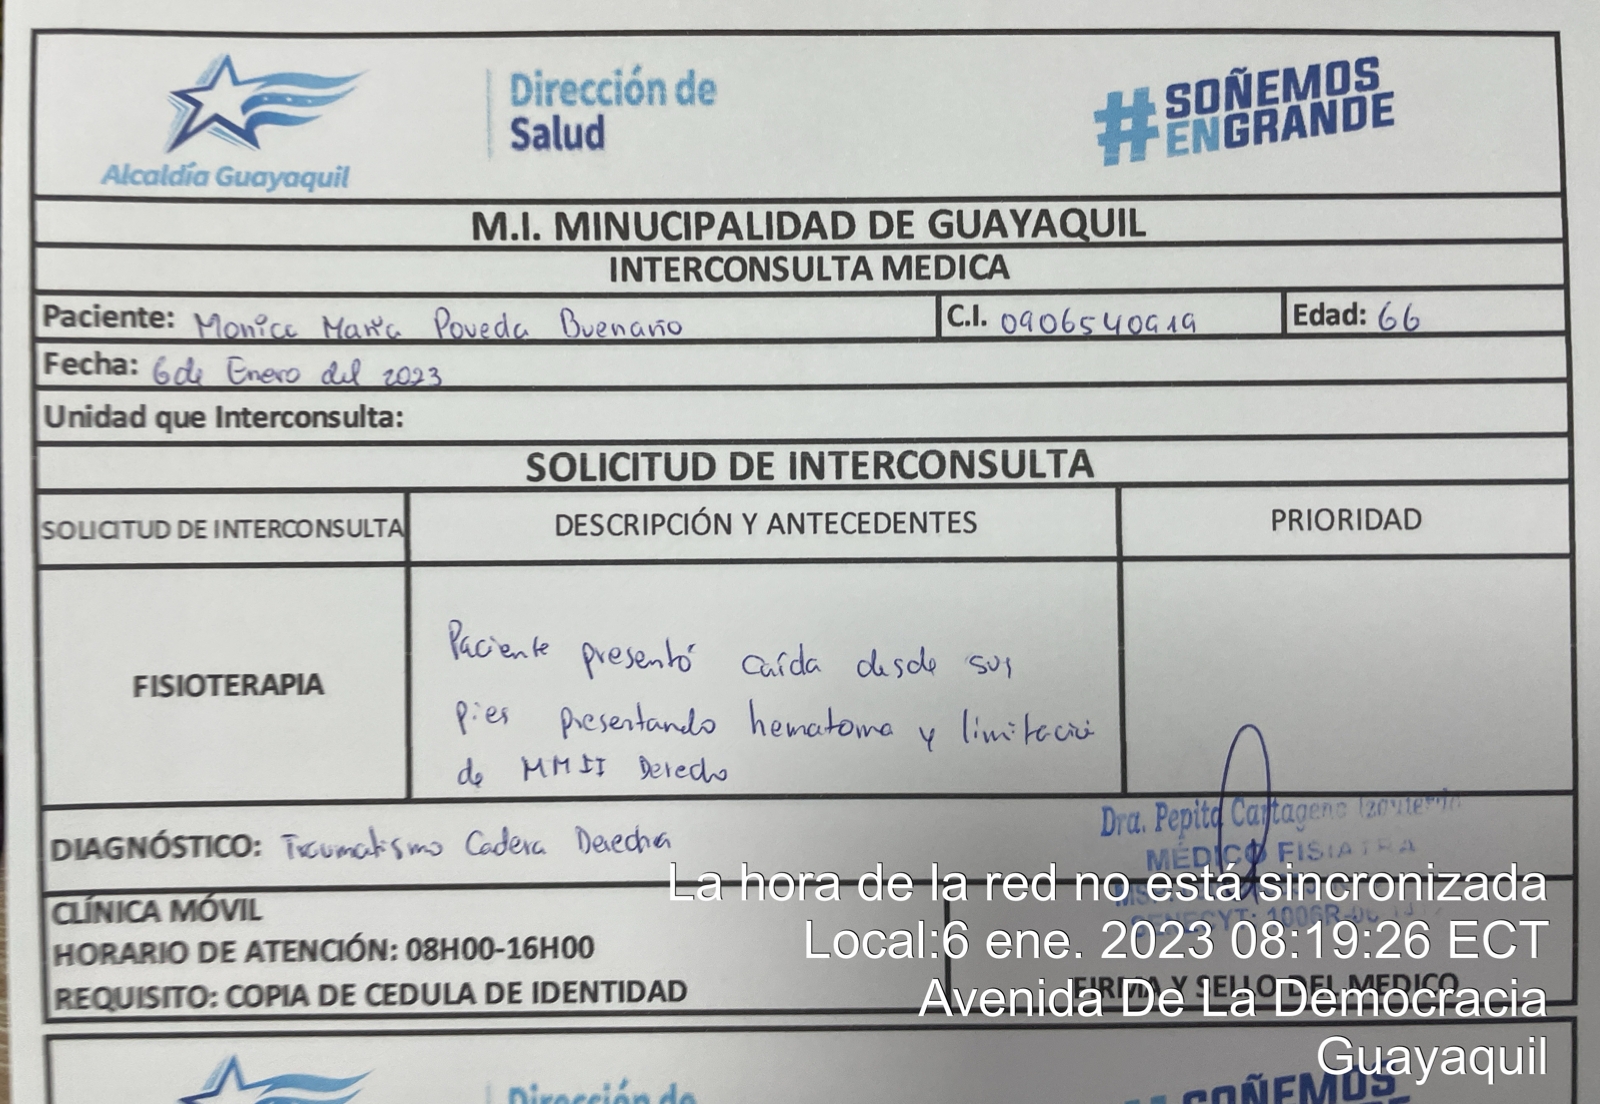 Alcaldía Guayaquil
Dirección de
Salud
#SOÑEMOS
ENGRANDE
M.I. MINUCIPALIDAD DE GUAYAQUIL
INTERCONSULTA MEDICA
Paciente: Monica Maria Poveda Buenaño C.I. 0906540919 Edad: 66
Fecha: 6 de Enero del 2023
Unidad que Interconsulta:
SOLICITUD DE INTERCONSULTA
SOLICITUD DE INTERCONSULTA DESCRIPCIÓN Y ANTECEDENTES PRIORIDAD
FISIOTERAPIA
Paciente presentó caída desde sus
pies presentando hematoma y limitación
de MMII Derecho
DIAGNÓSTICO: Traumatismo Cadera Derecha
Dra. Pepita Cartagena Izquierdo
MÉDICO FISIATRA
CLÍNICA MÓVIL
HORARIO DE ATENCIÓN: 08H00-16H00
REQUISITO: COPIA DE CEDULA DE IDENTIDAD
SENECYT: 1006R-
FIRMA Y SELLO DEL MEDICO
La hora de la red no está sincronizada
Local:6 ene. 2023 08:19:26 ECT
Avenida De La Democracia
Guayaquil
Dirección de
SOÑEMOS